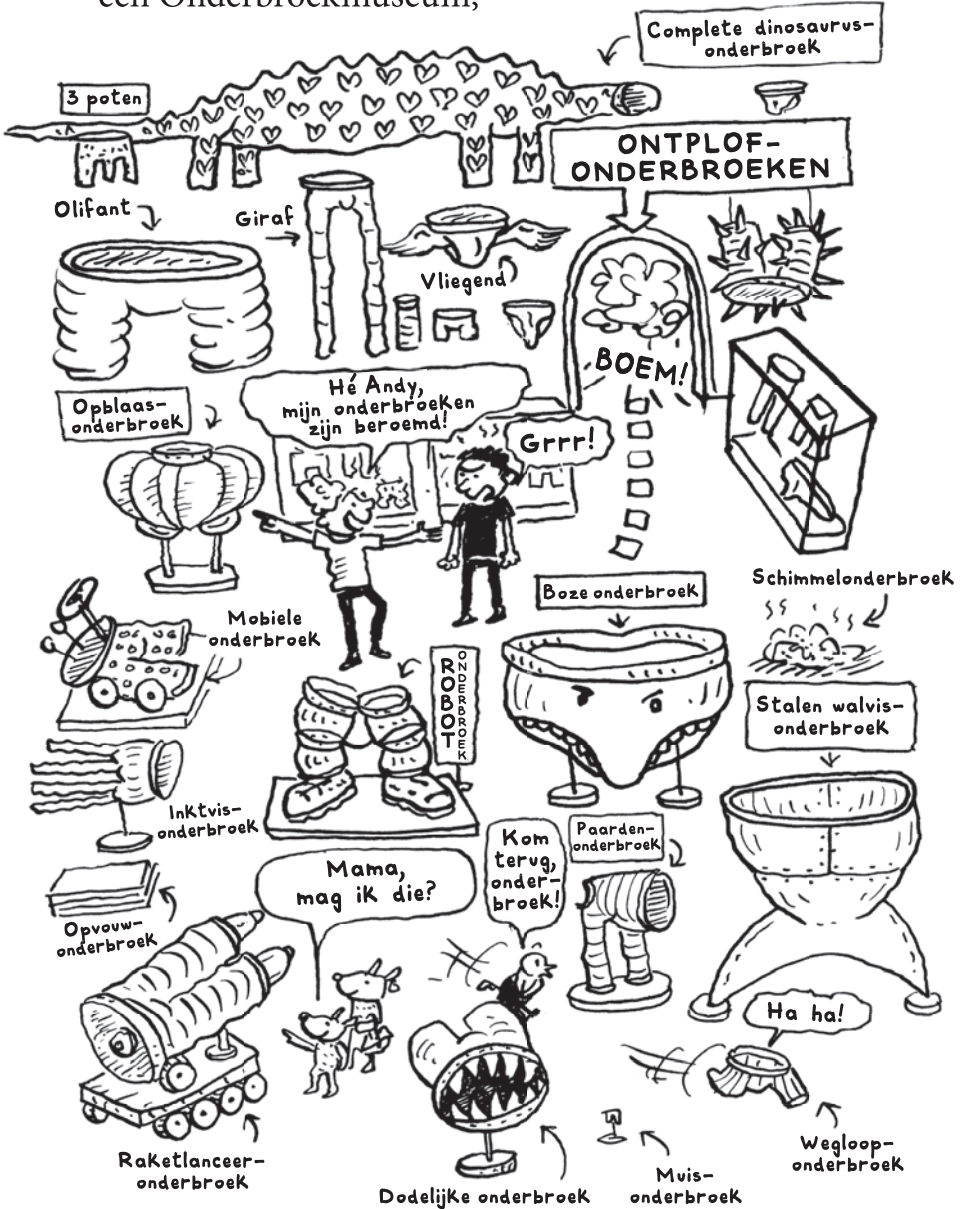 een Onderbroekmuseum,
Complete dinosaurus-
onderbroek
3 poten
ONTPLOF-
ONDERBROEKEN
Olifant
Giraf
Vliegend
BOEM!
Opblaas-
onderbroek
Hé Andy,
mijn onderbroeken
zijn beroemd!
Grrr!
Schimmelonderbroek
Boze onderbroek
Mobiele
onderbroek
ROBOT
ONDERBROEK
Stalen walvis-
onderbroek
Inktvis-
onderbroek
Kom
terug,
onder-
broek!
Paarden-
onderbroek
Mama,
mag ik die?
Opvouw-
onderbroek
Ha ha!
Raketlanceer-
onderbroek
Dodelijke onderbroek
Muis-
onderbroek
Wegloop-
onderbroek